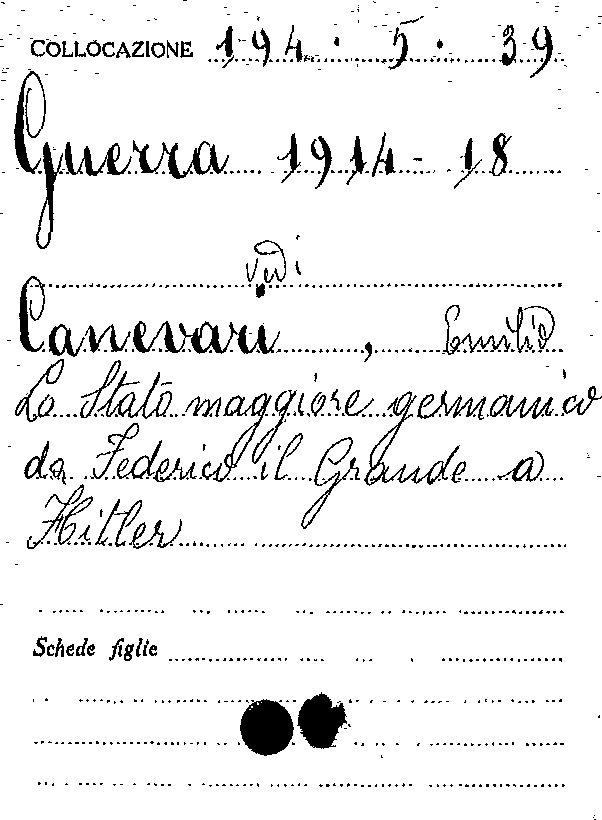 COLLOCAZIONE 194. 5. 39
Guerra 1914-18
vedi
Canevari, Emilio
Lo Stato maggiore germanico
da Federico il Grande a
Hitler
Schede figlie